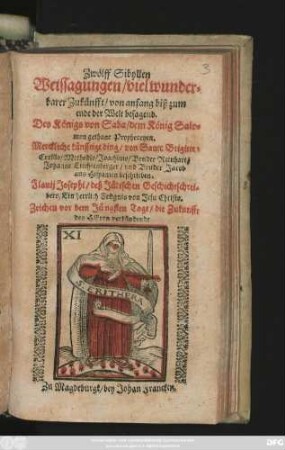 3
Zwölff Sibyllen
Weissagungen / viel wunder-
barer Zukünfft / von anfang biß zum
ende der Welt besagend.
Des Königs von Saba / dem König Salo-
mon gethane Propheceyen.
Merckliche künfftige ding / von Sanct Brigitten /
Cyrillo / Methodio / Joachimo / Bruder Reinhart /
Johann Liechtenberger / und Bruder Jacob
aus Hispanien beschrieben.
Flauij Josephi / deß Jüdischen Geschichtschrei-
bers / Ein herrlich Zeugnis von Jesu Christo.
Zeichen vor dem Jüngsten Tage / die Zukunfft
des HErrn verkündende.
XI
Zu Magdeburgk / bey Johan Francken.